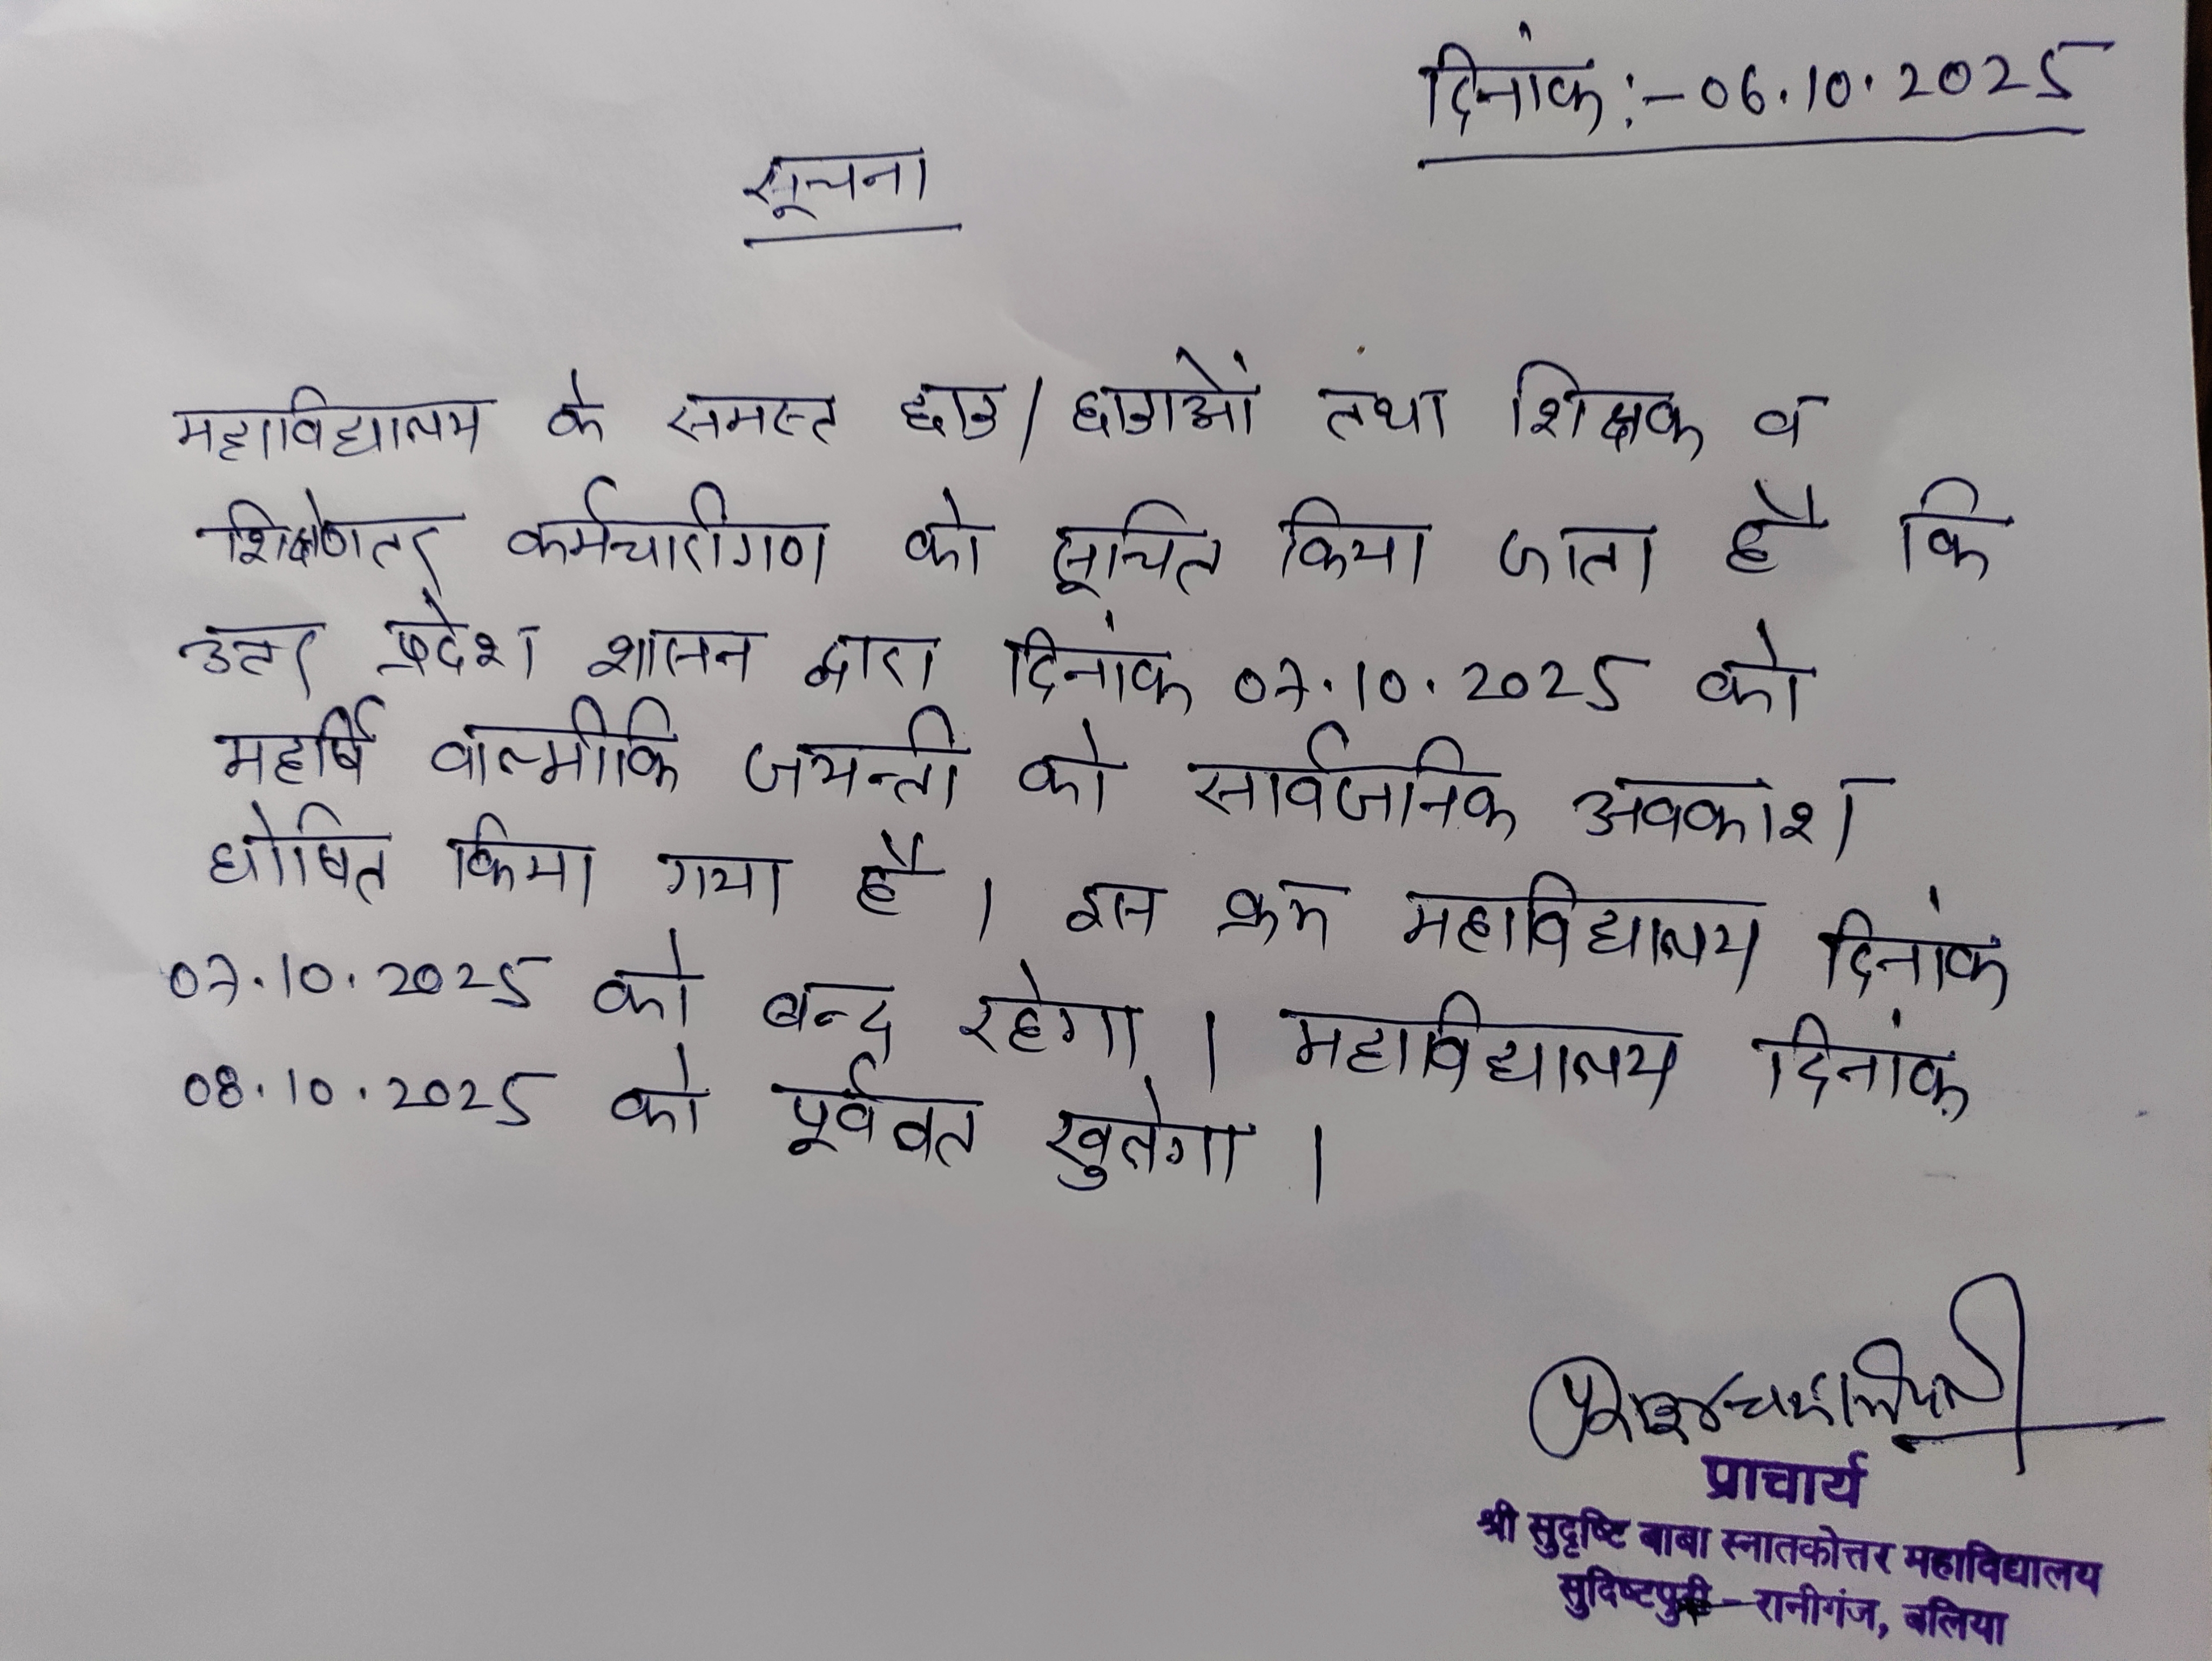 दिनांक :- 06.10.2025
सूचना
महाविद्यालय के समस्त छात्र/छात्राओं तथा शिक्षक व
शिक्षणेतर कर्मचारीगण को सूचित किया जाता है कि
उत्तर प्रदेश शासन द्वारा दिनांक 07.10.2025 को
महर्षि वाल्मीकि जयन्ती को सार्वजनिक अवकाश
घोषित किया गया है। इस क्रम महाविद्यालय दिनांक
07.10.2025 को बन्द रहेगा। महाविद्यालय दिनांक
08.10.2025 को पूर्ववत खुलेगा।
प्राचार्य
श्री सुदृष्टि बाबा स्नातकोत्तर महाविद्यालय
सुदिष्टपुरी - रानीगंज, बलिया